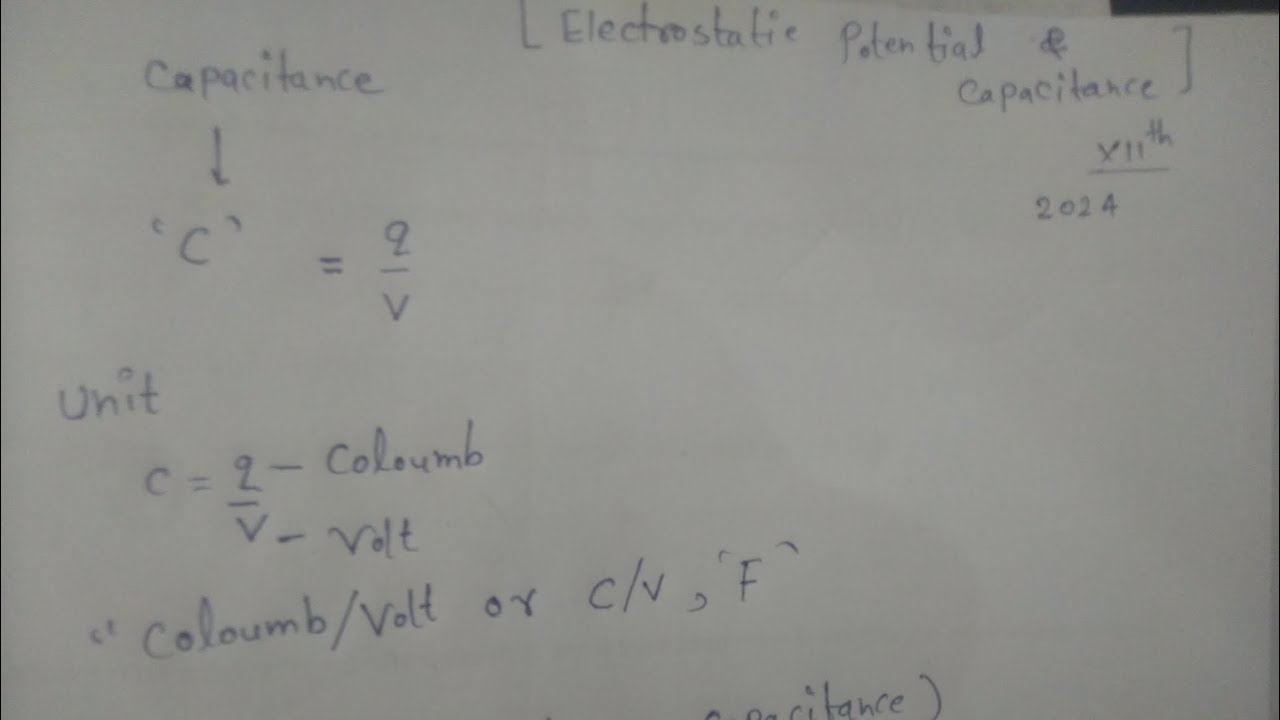 [ Electrostatic Potential &
Capacitance ]
XIIth
2024
Capacitance
↓
'C' = q/V
Unit
C = q/V - Coloumb
- Volt
" Coloumb/Volt or C/V, 'F'
capacitance)